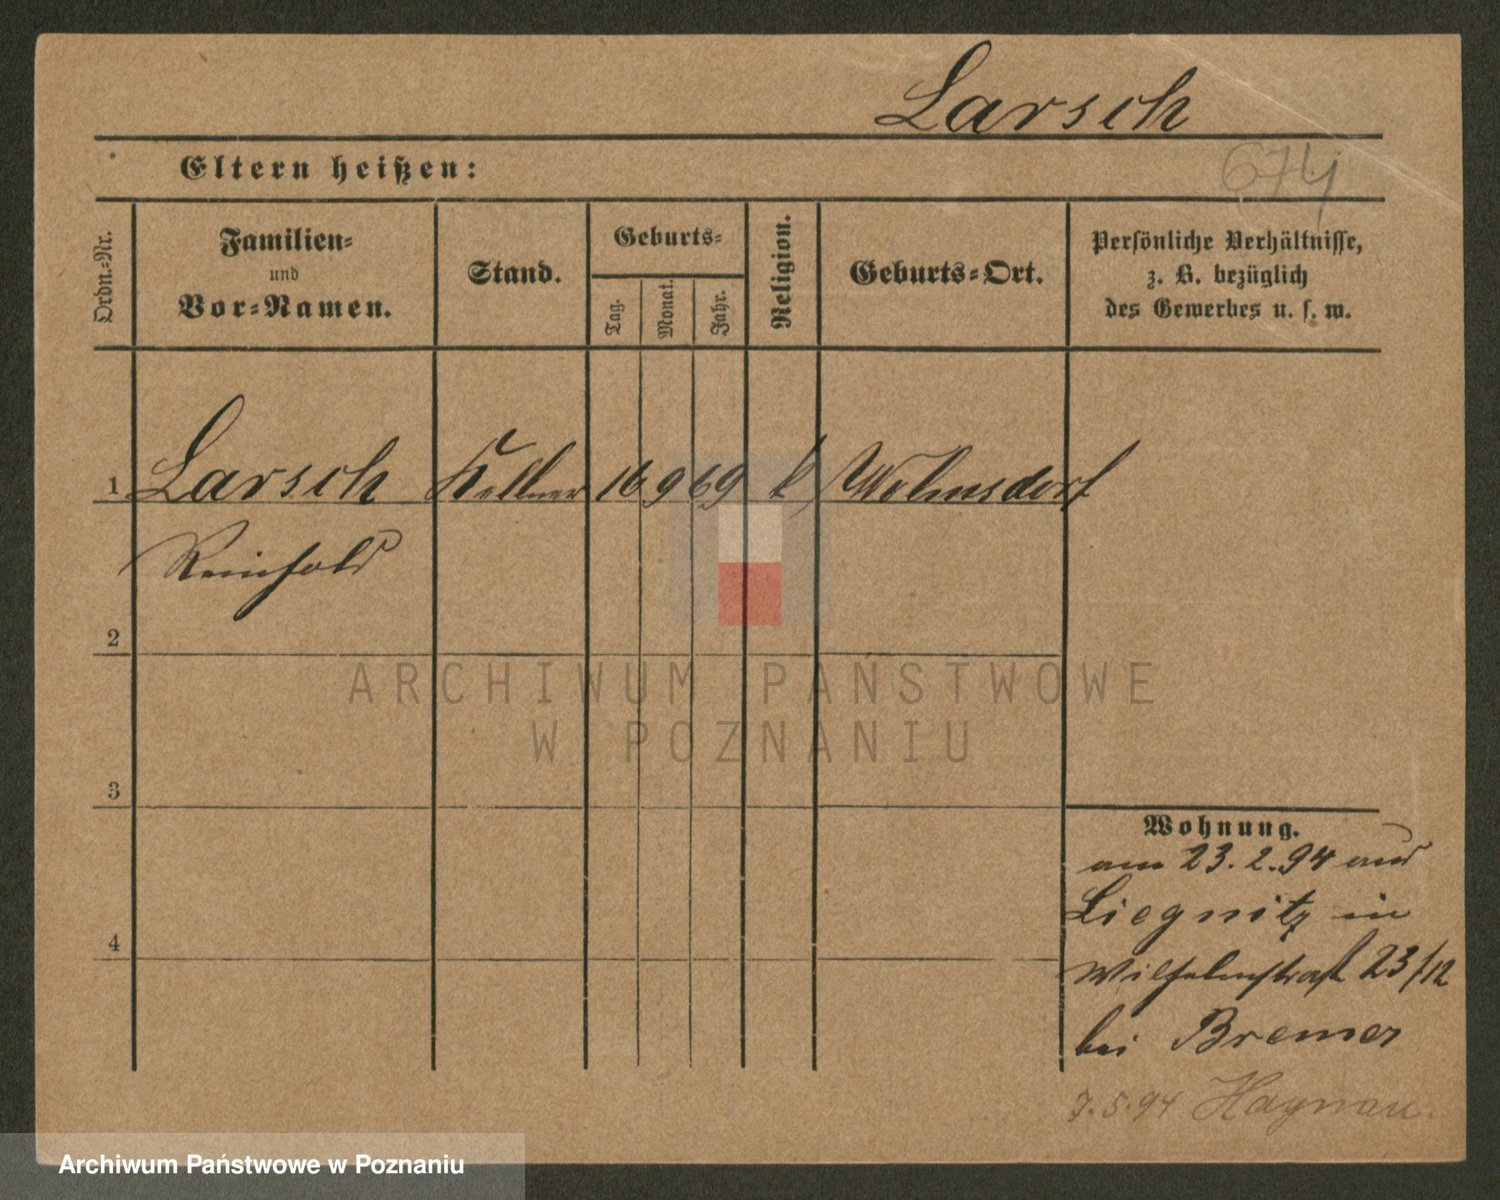 Larsch
Eltern heißen:
674
Ordn.-Nr.
Familien-
und
Vor-Namen.
Stand.
Geburts-
Tag.
Monat.
Jahr.
Religion.
Geburts-Ort.
Persönliche Verhältnisse,
z. B. bezüglich
des Gewerbes u. s. w.
1 Larsch Kellner 16 9 69 k
Reinhold
2
ARCHIWUM PAŃSTWOWE
W POZNANIU
3
Wohnung.
am 23. 2. 94 aus
Liegnitz in
4
Wilhelmstraß 23/12
bei Bremer
7. 5. 94 Hagnau.
Archiwum Państwowe w Poznaniu